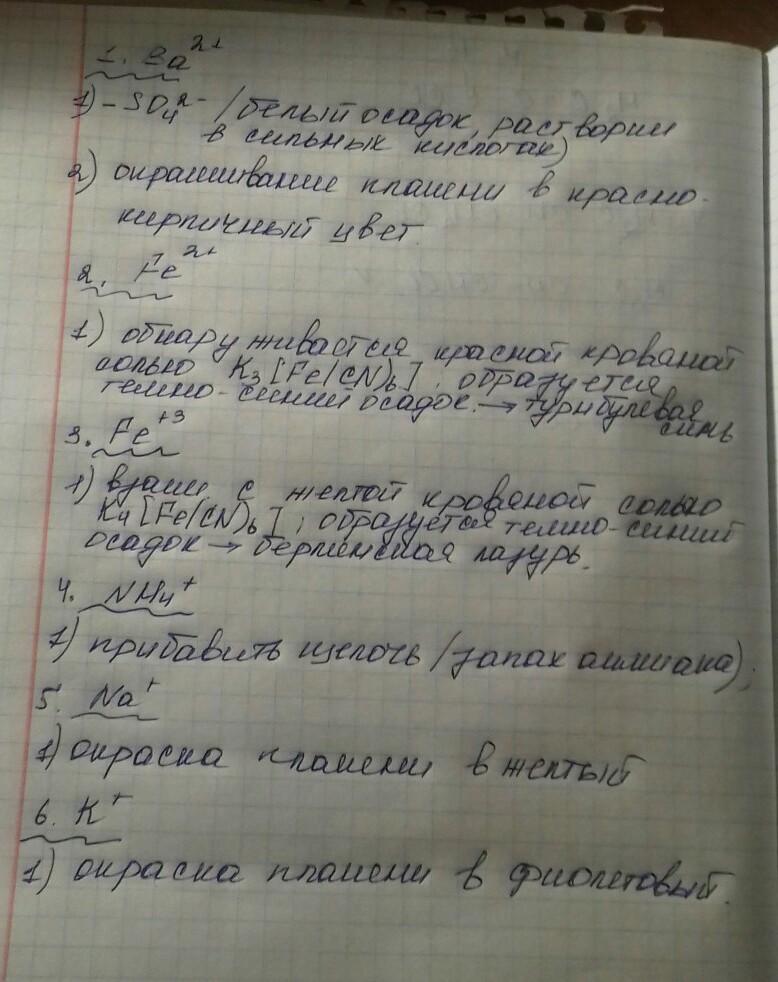 1. Ba²⁺
1) – SO₄²⁻ /белый осадок, растворим
в сильных кислотах)
2) окрашивание пламени в красно-
кирпичный цвет.
2. Fe²⁺
1) обнаруживается красной кровяной
солью K₃[Fe(CN)₆], образуется
темно-синий осадок. → турнбулевая
синь
3. Fe⁺³
1) взаим с желтой кровяной солью
K₄[Fe(CN)₆], образуется темно-синий
осадок → берлинская лазурь.
4. NH₄⁺
1) прибавить щелочь /запах аммиака);
5. Na⁺
1) окраска пламени в желтый
6. K⁺
1) окраска пламени в фиолетовый.